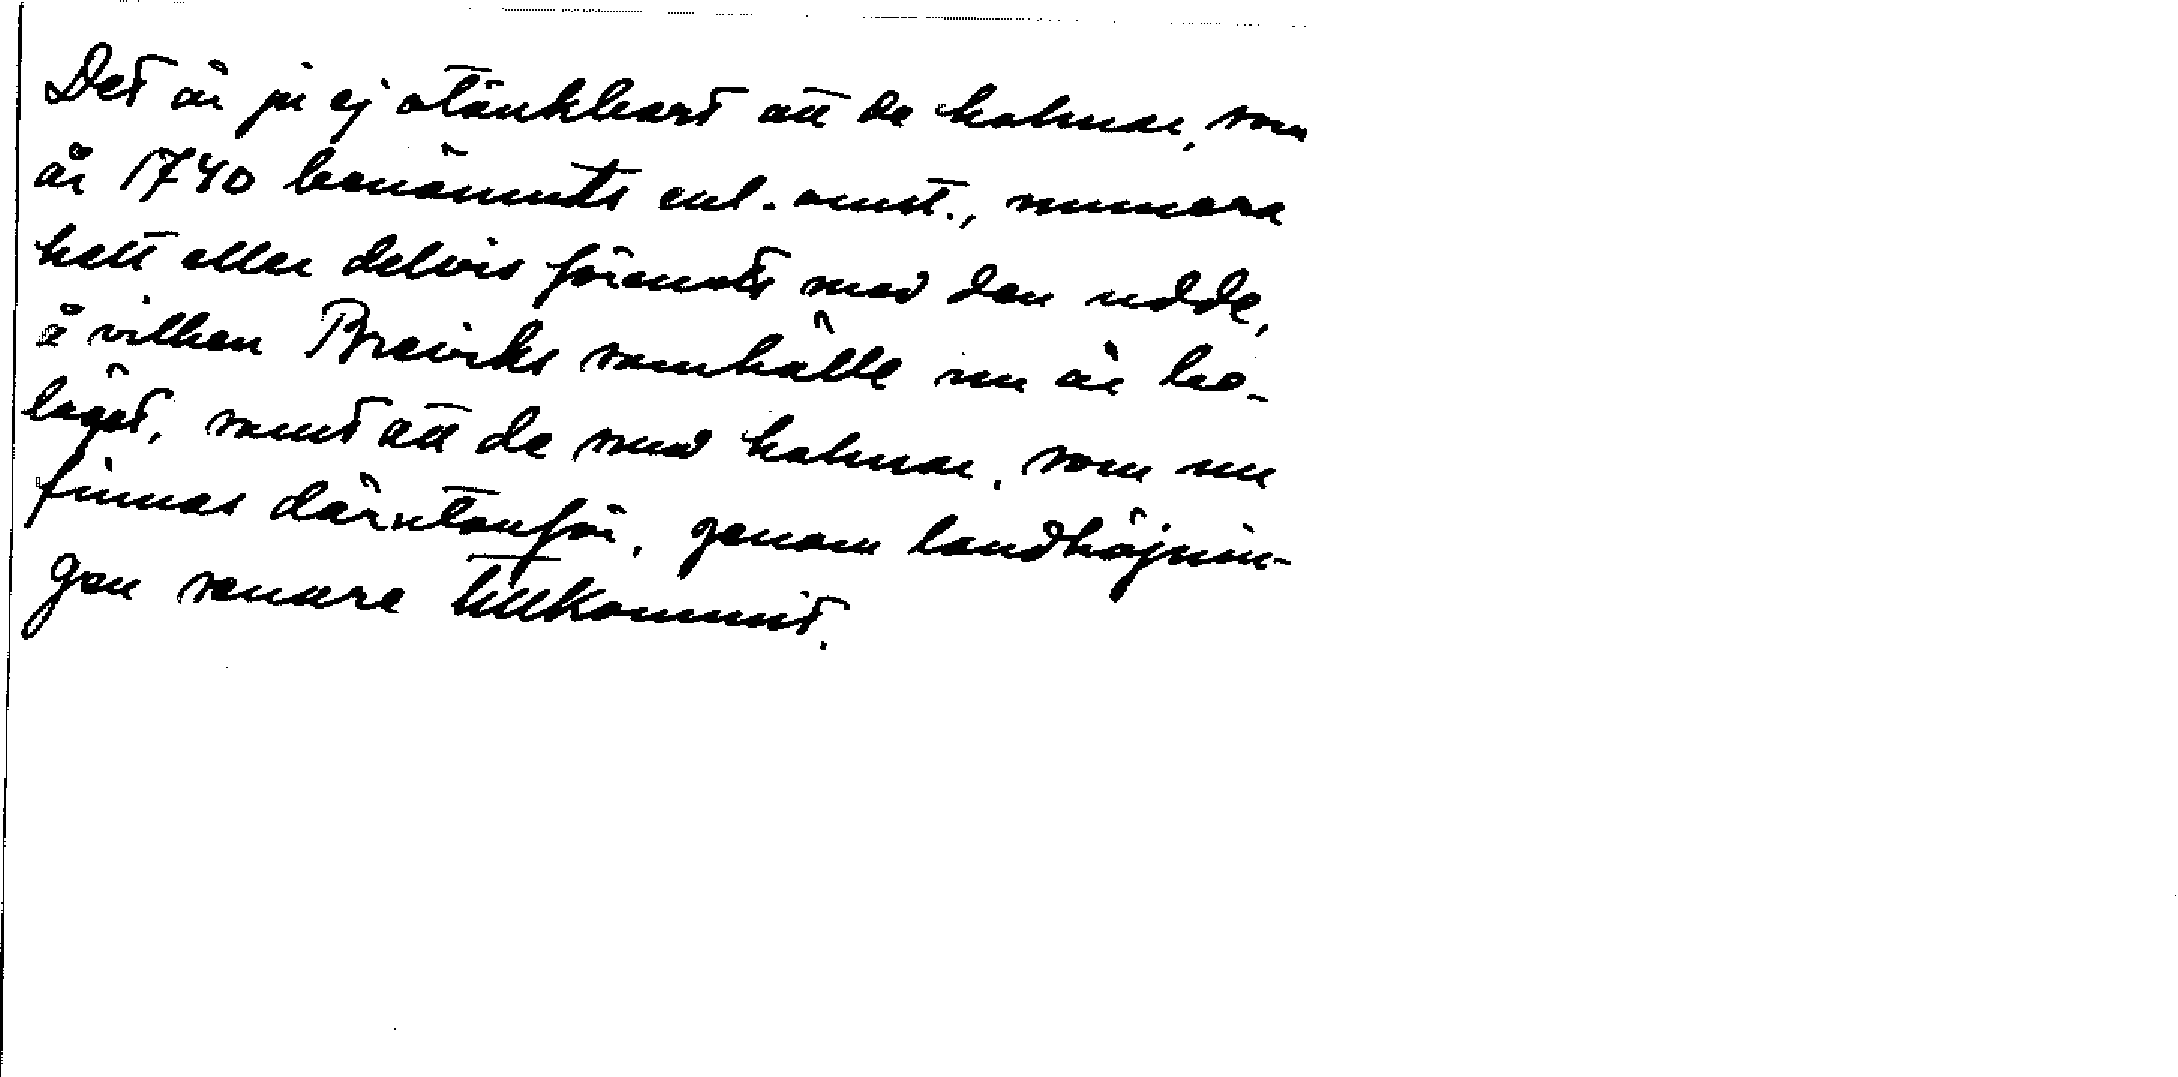 Det är ju ej otänkbart att de holmar, som
år 1740 benämnts enl. omst., numera
helt eller delvis förenats med den udde,
å vilken Breviks samhälle nu är be-
läget, samt att de små holmar, som nu
finnas därutanför, genom landhöjnin-
gen senare tillkommit.